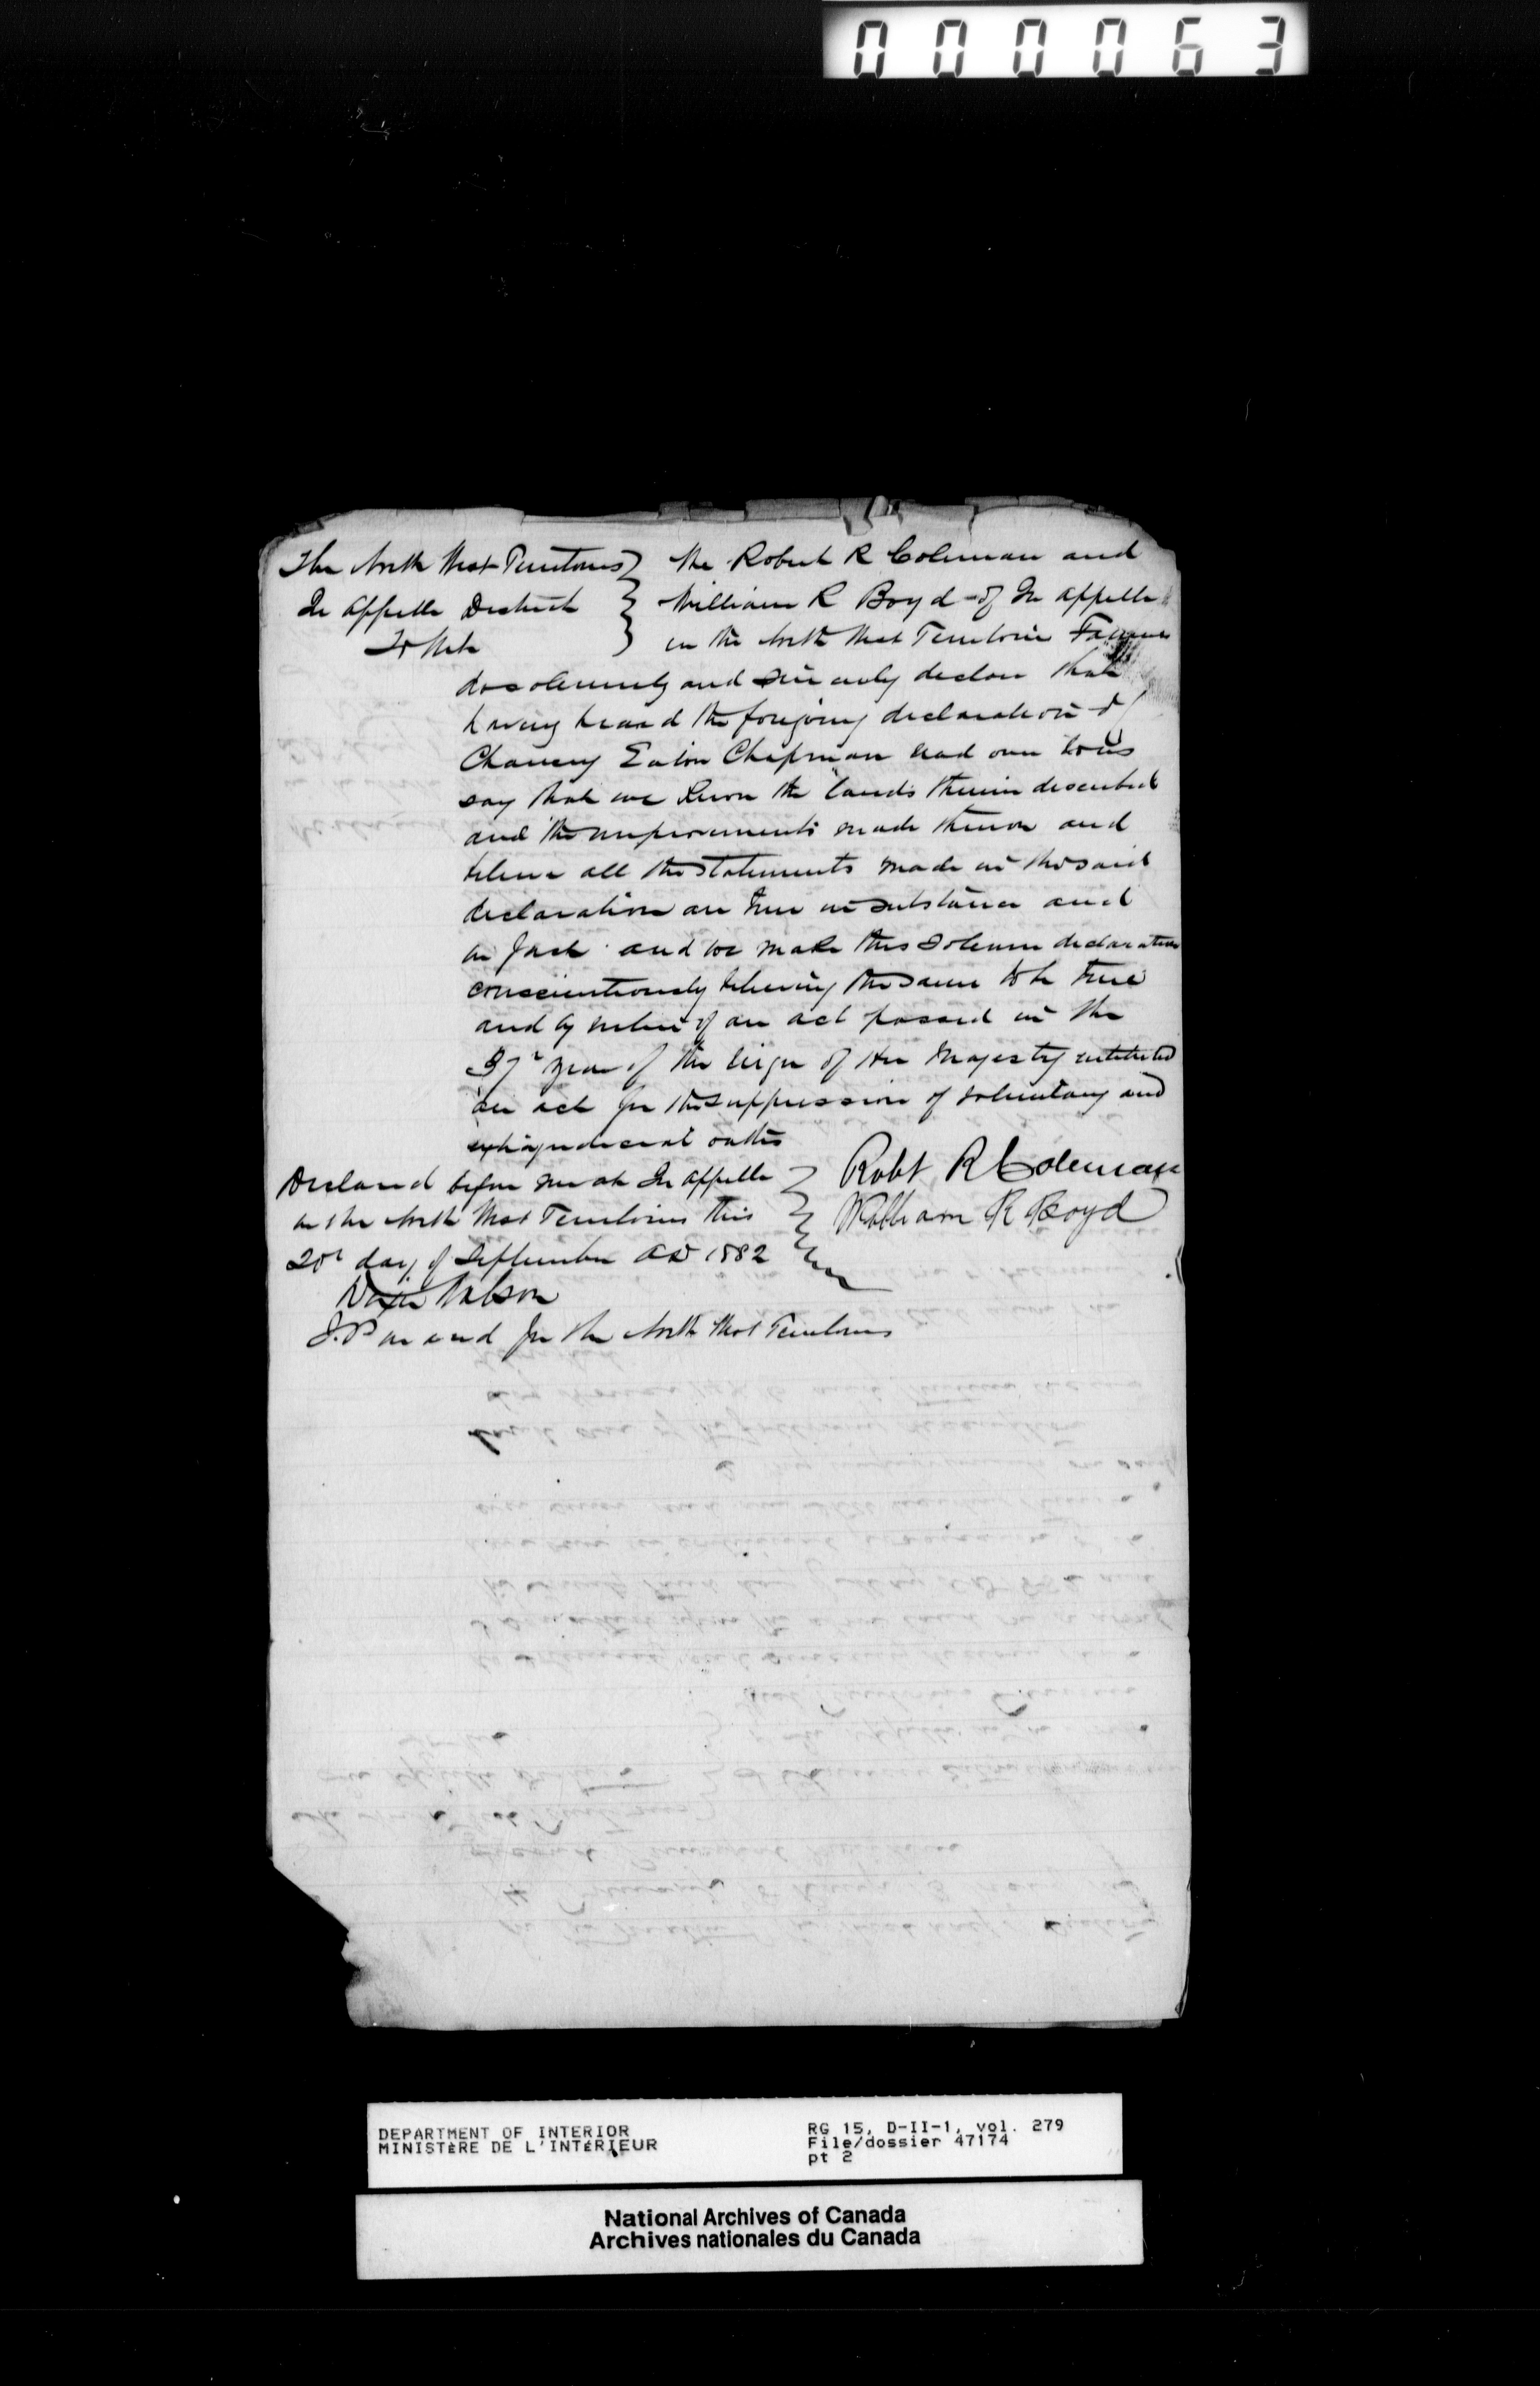 000063
The North West Territories } We Robert R Coleman and
Qu Appelle District } William R Boyd of Qu Appelle
To Wit } in the North West Territories Farmers
do solemnly and sincerely declare that
having heard the foregoing declaration of
Chancey Eaton Chapman read over to us
say that we know the lands therein described
and the improvements made thereon and
believe all the statements made in the said
declaration are true in substance and
in fact and we make this solemn declaration
conscientiously believing the same to be true
and by virtue of an act passed in the
37th year of the reign of Her Majesty intituled
an act for the suppression of voluntary and
extrajudicial oaths
Declared before me at Qu Appelle } Robt R Coleman
in the North West Territories this } William R Boyd
20th day of September AD 1882
Wilson
J.P in and for the North West Territories
DEPARTMENT OF INTERIOR
MINISTÈRE DE L'INTÉRIEUR
RG 15, D-II-1, vol. 279
File/dossier 47174
pt 2
National Archives of Canada
Archives nationales du Canada